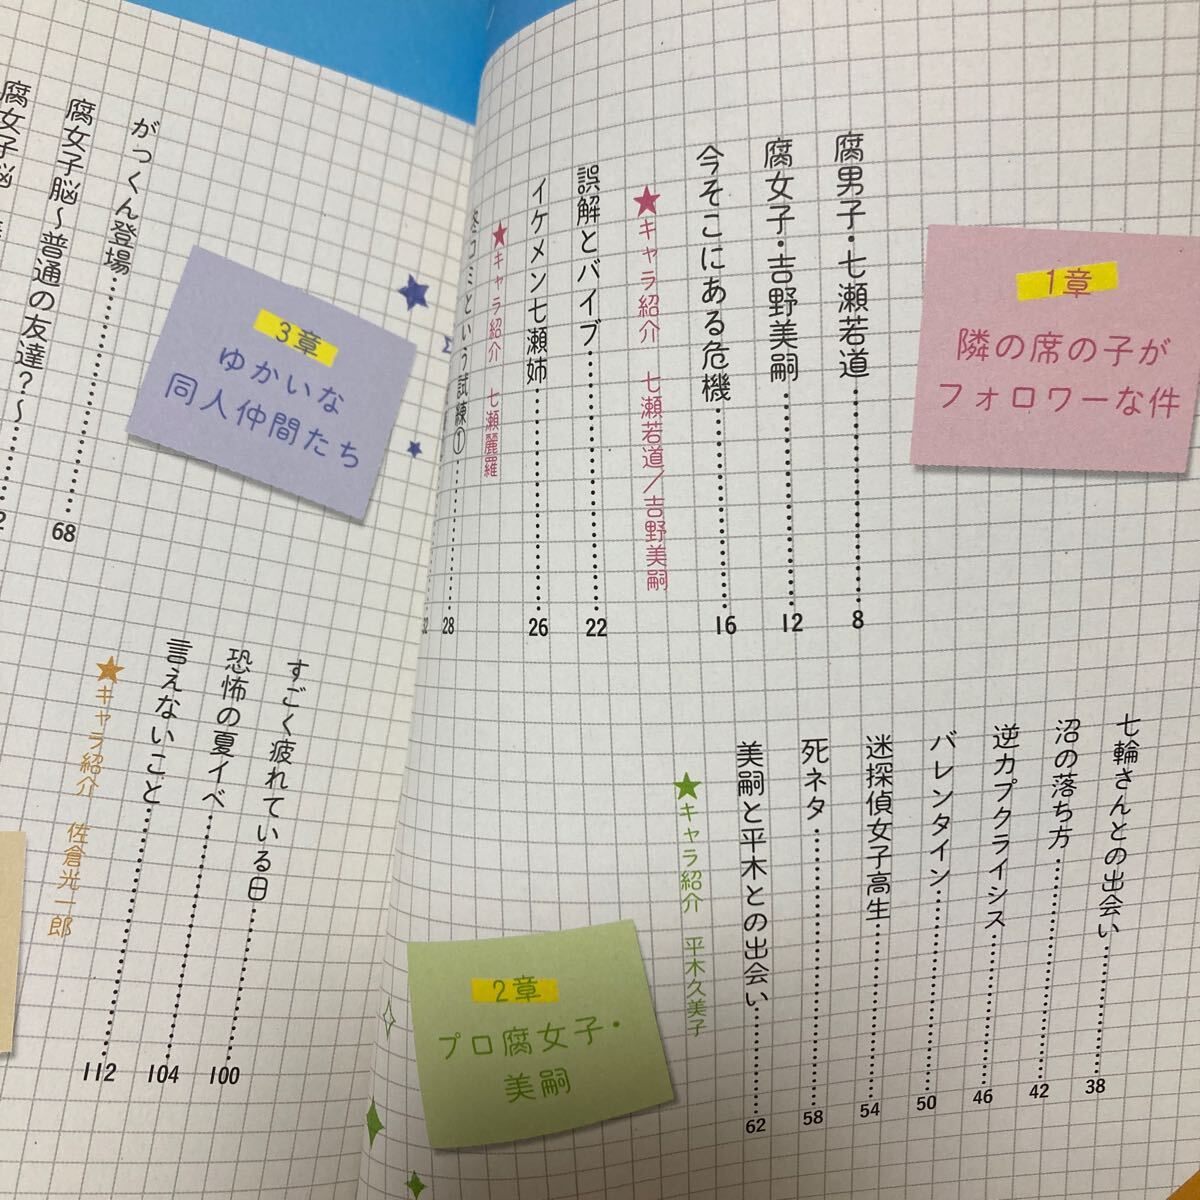 1章
隣の席の子が
フォロワーな件
腐男子・七瀬若道……………8
腐女子・吉野美嗣……………12
今そこにある危機……………16
★キャラ紹介 七瀬若道／吉野美嗣
誤解とバイブ……………22
イケメン七瀬姉……………26
★キャラ紹介 七瀬麗羅
冬コミという試練①……………28
2章
プロ腐女子・
美嗣
七輪さんとの出会い……………38
沼の落ち方……………42
逆カプクライシス……………46
バレンタイン……………50
迷探偵女子高生……………54
死ネタ……………58
美嗣と平木との出会い……………62
★キャラ紹介 平木久美子
3章
ゆかいな
同人仲間たち
がっくん登場……………68
腐女子脳〜普通の友達？〜……………
腐女子脳
すごく疲れている日……………100
恐怖の夏イベ……………104
言えないこと……………112
★キャラ紹介 佐倉光一郎